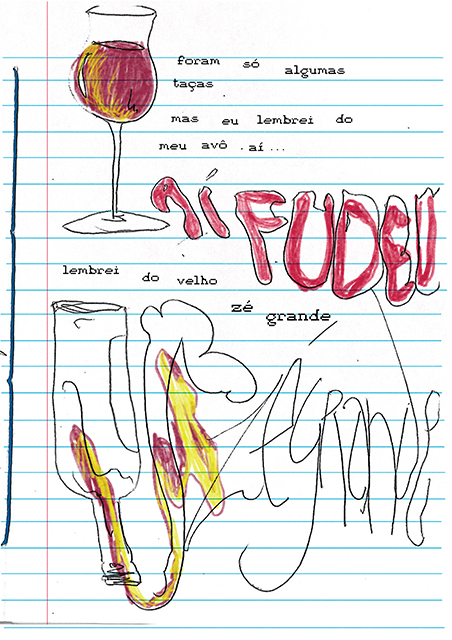 foram só algumas
taças
mas eu lembrei do
meu avô . aí...
AÍ FUDEU
lembrei do velho
zé grande